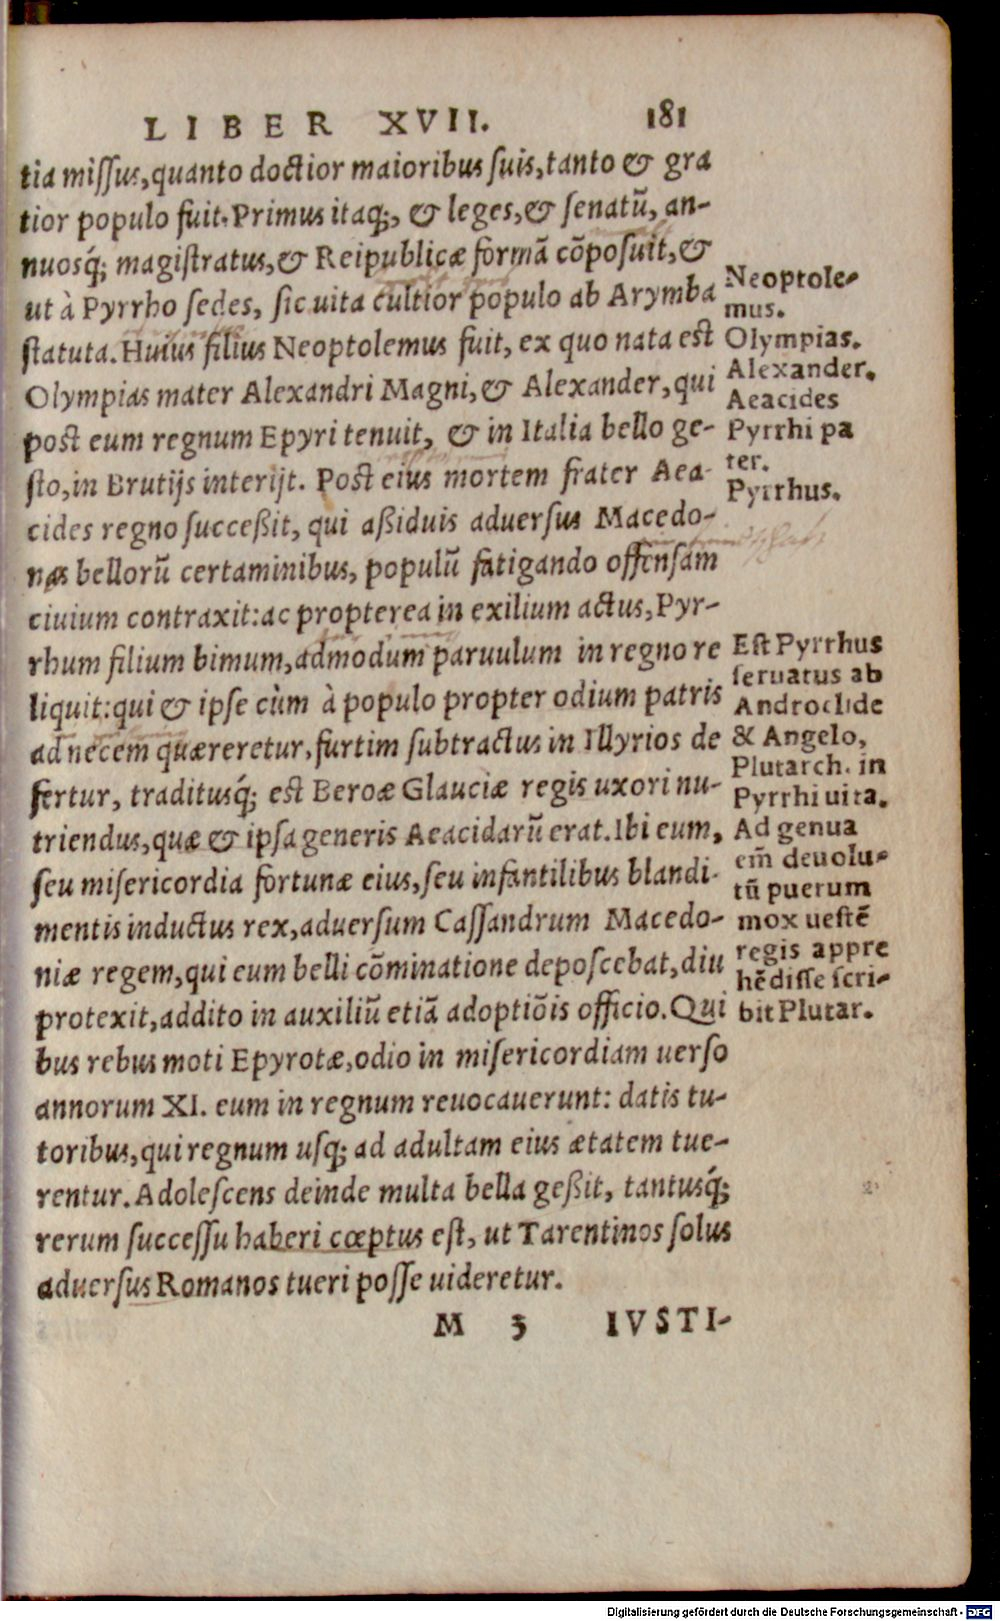 LIBER XVII. 181
tia missus, quanto doctior maioribus suis, tanto & gra
tior populo fuit. Primus itaq;, & leges, & senatū, an-
nuosq́; magistratus, & Reipublicæ formā cōposuit, &
ut à Pyrrho sedes, sic uita cultior populo ab Arymba
statuta. Huius filius Neoptolemus fuit, ex quo nata est
Olympias mater Alexandri Magni, & Alexander, qui
post eum regnum Epyri tenuit, & in Italia bello ge-
sto, in Brutijs interijt. Post eius mortem frater Aea-
cides regno successit, qui assiduis aduersus Macedo-
nas bellorū certaminibus, populū fatigando offensam
ciuium contraxit: ac propterea in exilium actus, Pyr-
rhum filium bimum, admodum paruulum in regno re
liquit: qui & ipse cùm à populo propter odium patris
ad necem quæreretur, furtim subtractus in Illyrios de
fertur, traditusq́; est Beroæ Glauciæ regis uxori nu-
triendus, quæ & ipsa generis Aeacidarū erat. Ibi eum,
seu misericordia fortunæ eius, seu infantilibus blandi-
mentis inductus rex, aduersum Cassandrum Macedo-
niæ regem, qui eum belli cōminatione deposcebat, diu
protexit, addito in auxiliū etiā adoptiōis officio. Qui
bus rebus moti Epyrotæ, odio in misericordiam uerso
annorum XI. eum in regnum reuocauerunt: datis tu-
toribus, qui regnum usq; ad adultam eius ætatem tue-
rentur. Adolescens deinde multa bella gessit, tantusq́;
rerum successu haberi cœptus est, ut Tarentinos solus
aduersus Romanos tueri posse uideretur.
M 3 IVSTI-
Neoptole-
mus.
Olympias.
Alexander.
Aeacides
Pyrrhi pa
ter.
Pyrrhus.
Est Pyrrhus
seruatus ab
Androclide
& Angelo,
Plutarch. in
Pyrrhi uita.
Ad genua
em̄ deuolu-
tū puerum
mox uestē
regis appre
hēdisse scri-
bit Plutar.
Digitalisierung gefördert durch die Deutsche Forschungsgemeinschaft - DFG